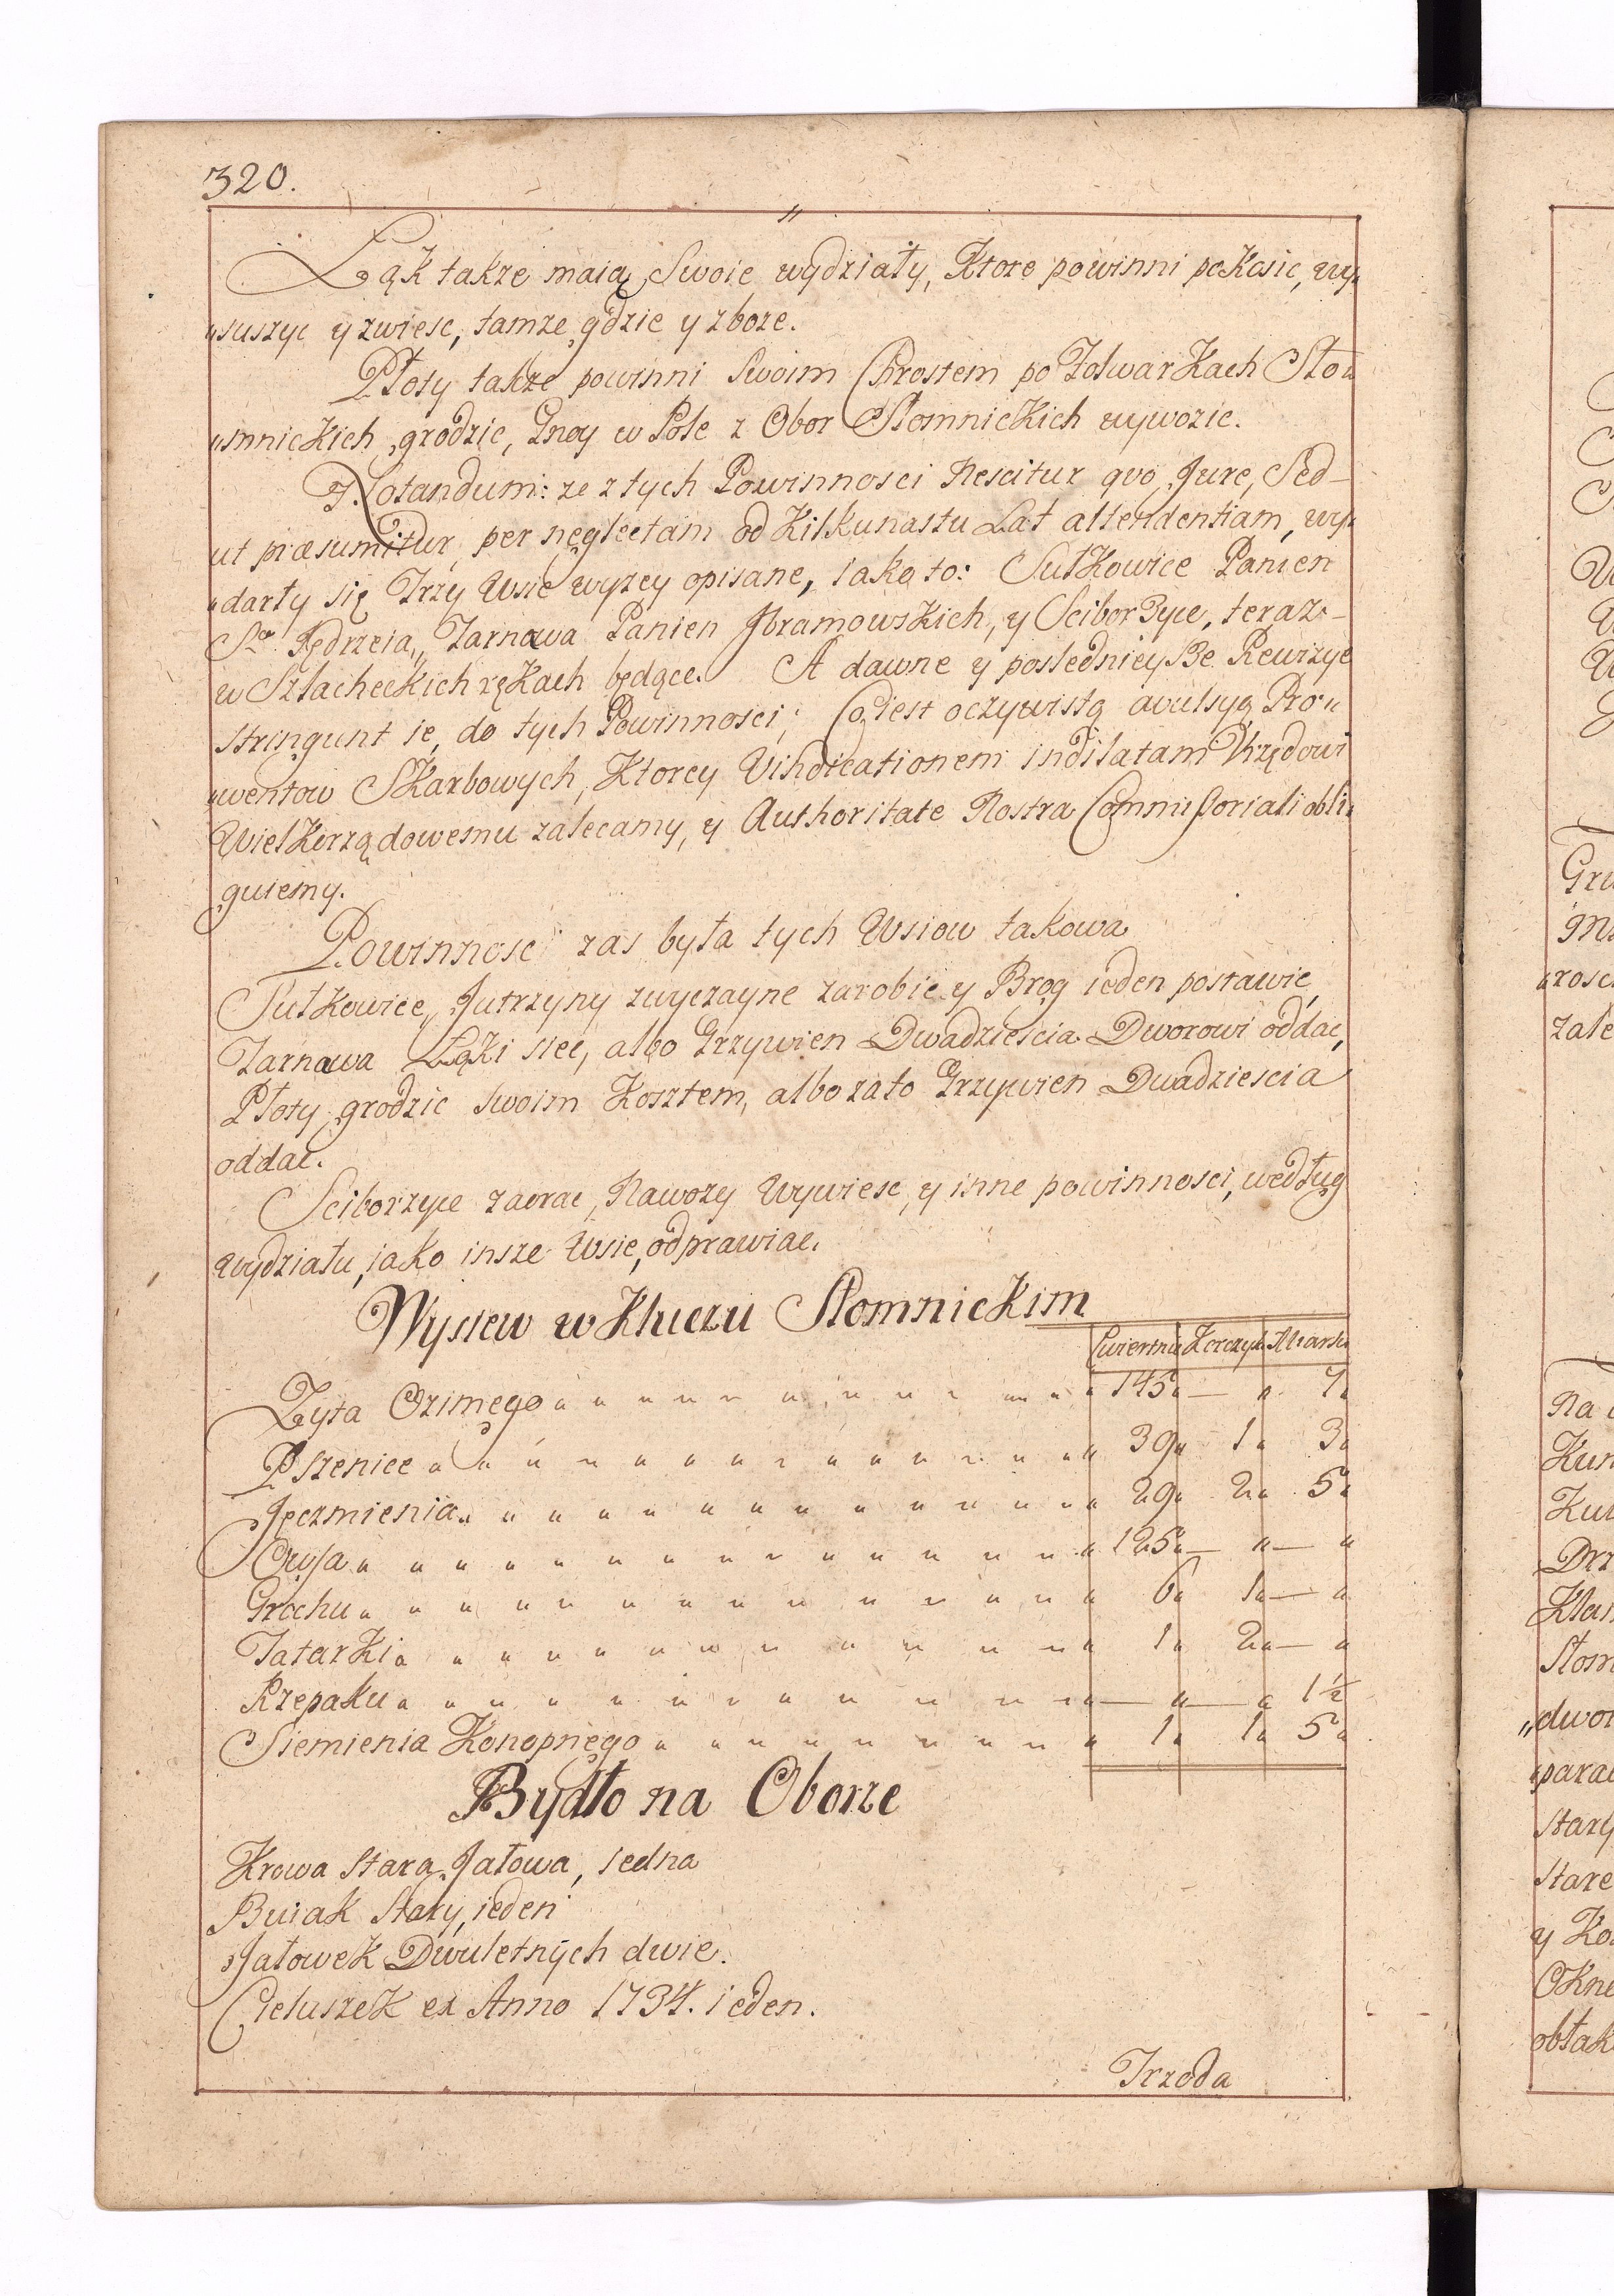 320.
Łąk także maią Swoie wydziały, Ktore powinni pokosic, wy„
„suszyc y zwiesc, tamze gdzie y zboze.
Płoty także powinni Swoim Chrostem po Folwarkach Sło„
„mnickich grodzic, Gnoy w Pole z Obor Słomnickich wywozic.
Notandum: ze z tych Powinnosci Nescitur qvo Jure, Sed–
ut præsumitur per neglectam od Kilkunastu Lat attendentiam, wy„
„darły się Trzy Wsie wyzey opisane, iako to: Sułkowice Panien
Sgo Jędrzeia, Tarnawa Panien Jbramowskich, y Sciborzyce, teraz–
w Szlacheckich rękach będące. A dawne y posledniey Be Rewizye
stringunt ie, do tych Powinnosci; Co iest oczywistą avulsyą Pro„
„wentow Skarbowych, Ktorey Vindicationem indilatam Vrzędowi
Wielkorządowemu zalecamy, y Authoritate Nostra Commissoriali obli„
guiemy.
Powinnosc zas była tych Wsiow takowa
Sułkowice, Jutrzyny zwyczayne zarobic y Brog ieden postawic
Tarnawa Łąki siec, albo Grzywien Dwadziescia Dworowi oddac,
Płoty grodzic swoim Kosztem, albo zato Grzywien Dwadziescia
oddac.
Sciborzyce zaorac, Nawozy Wywiesc, y inne powinnosci, według
wydziału, iako insze Wsie, odprawiac.
Wysiew w Kluczu Słomnickim
Cwiertnie Korczyk. Miarki
Zyta Ozimego „ 145„ — „ 7„
Pszenice „ 39„ 1„ 3„
Jęczmienia „ 29„ 2„ 5„
Owsa „ 125„ — „ — „
Grochu „ 6„ 1„ — „
Tatarki „ 1„ 2„ — „
Rzepaku „ — „ — „ 1½
Siemienia Konopnego „ 1„ 1„ 5„
Bydło na Oborze
Krowa Stara Jałowa, iedna
Buiak Stary, ieden
Jałowek Dwuletnych dwie.
Cieluszek ex Anno 1734. ieden.
Trzoda